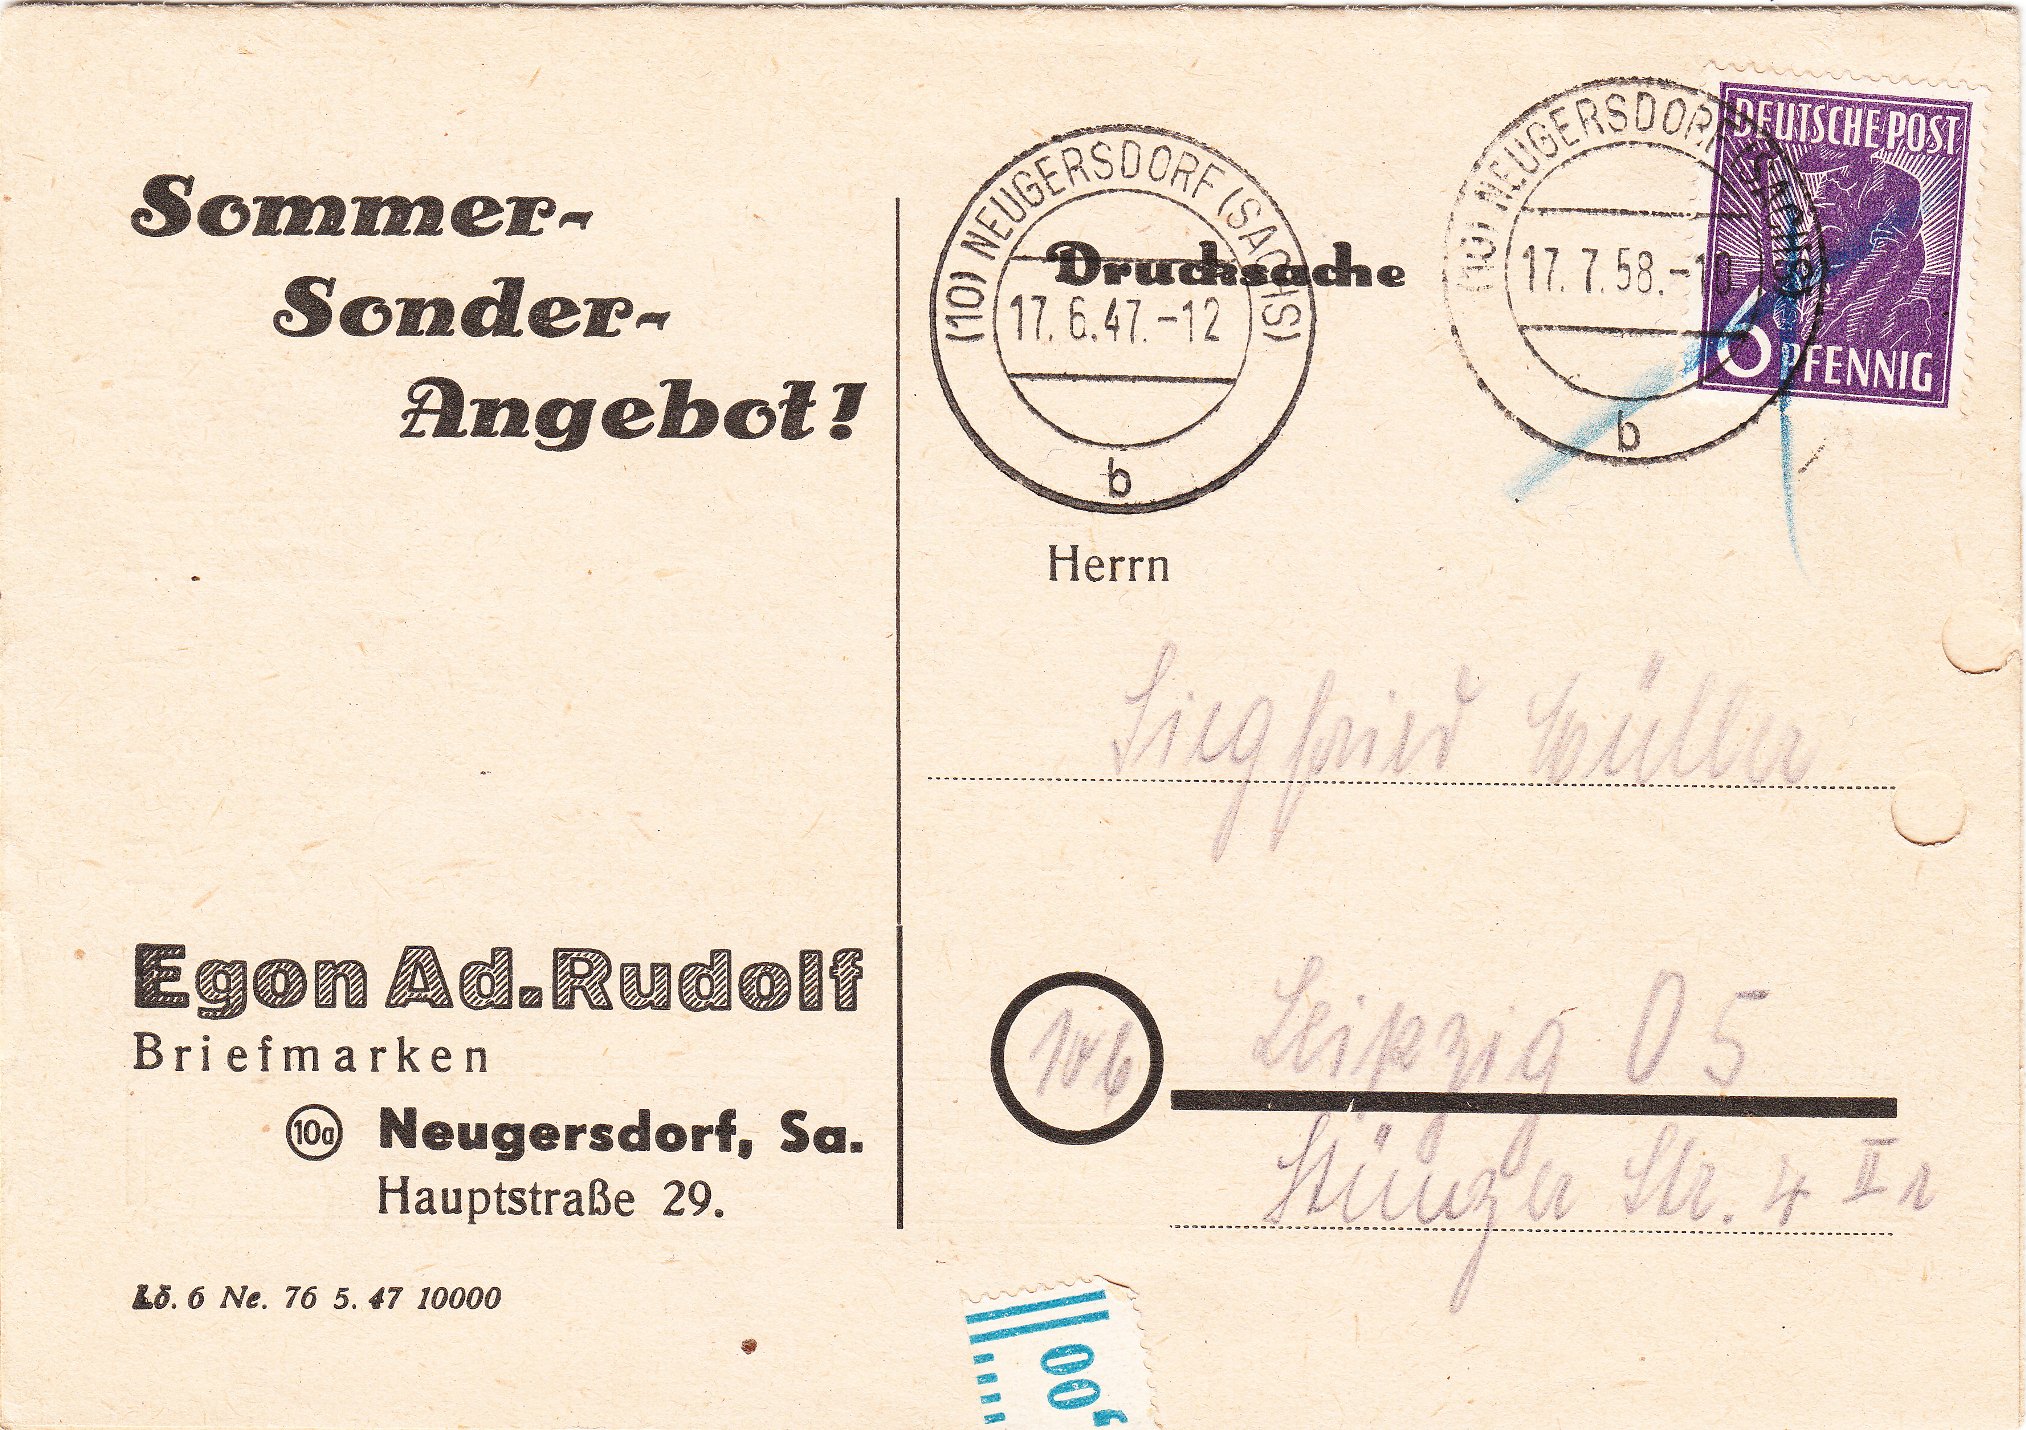 Sommer-
Sonder-
Angebot!
(10) NEUGERSDORF (SACHS)
17.6.47.-12
b
Drucksache
(10) NEUGERSDORF (SACHS)
17.7.58.-10
b
DEUTSCHE POST
6 PFENNIG
Herrn
Siegfried Müller
Egon Ad. Rudolf
Briefmarken
10a Neugersdorf, Sa.
Hauptstraße 29.
10b Leipzig O 5
Stünzer Str. 4 II r
Lö. 6 Ne. 76 5. 47 10000
00